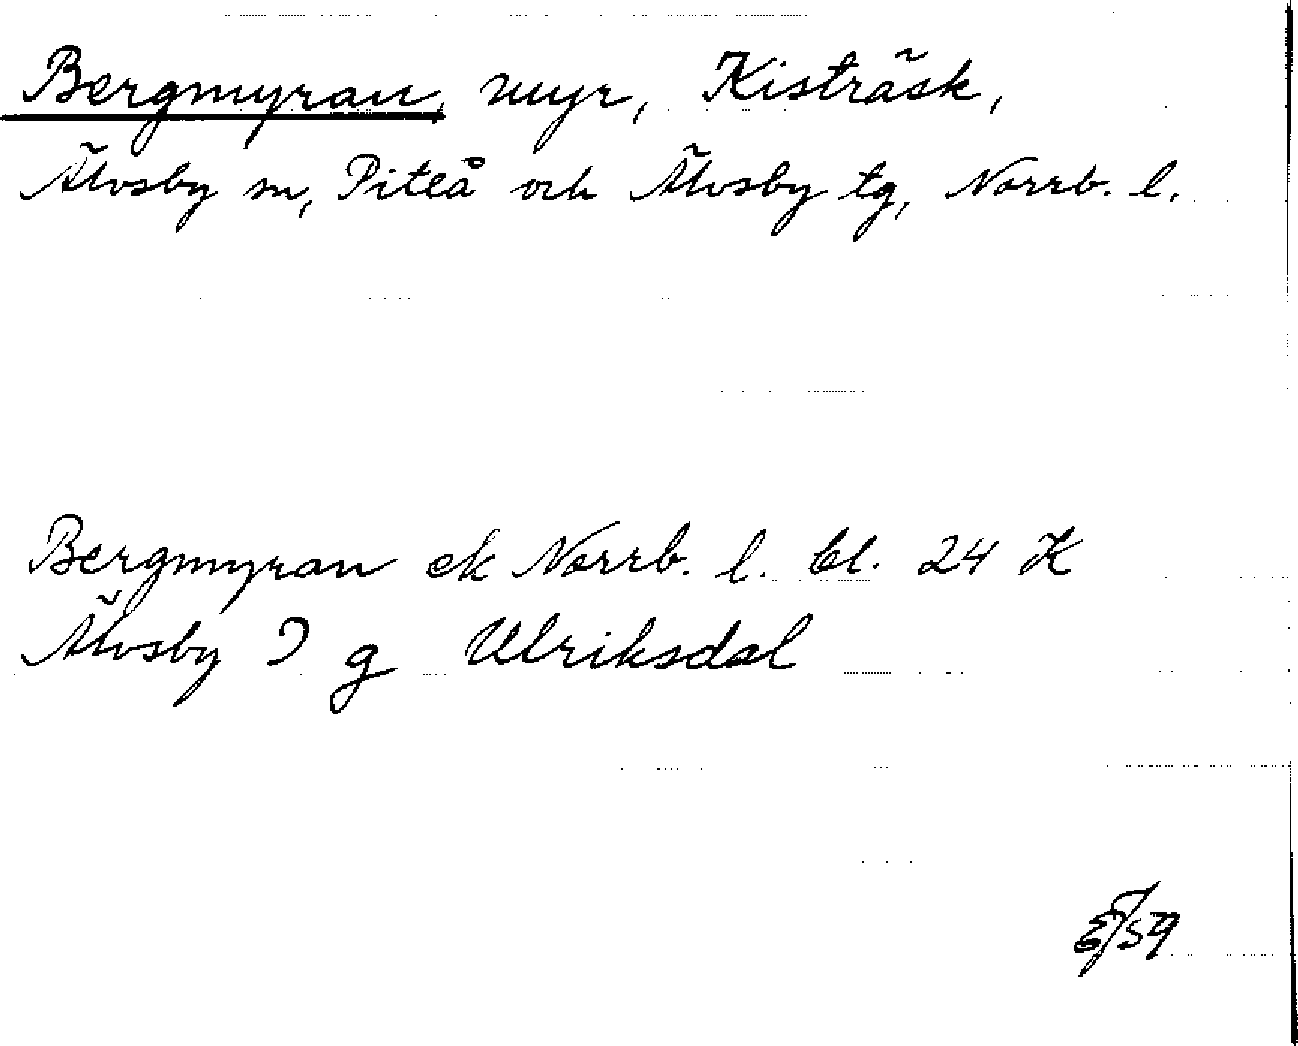 Bergmyran, myr, Kisträsk,
Älvsby sn, Piteå och Älvsby tg, Norrb. l.
Bergmyran ek Norrb. l. bl. 24 K
Älvsby I g Ulriksdal